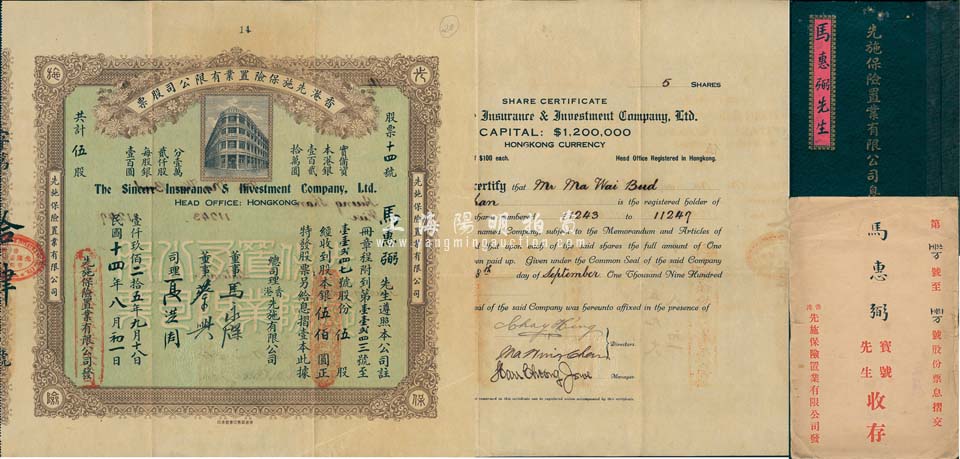 14
20
香港先施保險置業有限公司股票
先
施
保
險
股票十四號
實備資
本港銀
壹百貳
拾萬圓
分壹萬
貳仟股
每股銀
壹百圓
共計伍股
The Sincere Insurance & Investment Company, Ltd.
HEAD OFFICE: HONGKONG
馬惠弼先生遵照本公司註
冊章程附到第壹壹貳四三號至
壹壹貳四七號股份伍股
經收到股本銀伍佰圓正
特發股票另給息摺壹本此據
總司理香港先施有限公司
董事馬永燦
董事蔡興
司理夏洪周
壹仟玖佰二十五年九月十八日
民國十四年八月初一日
先施保險置業有限公司發
先施保險置業有限公司
先施保險置業有限公司
5 SHARES
SHARE CERTIFICATE
Insurance & Investment Company, Ltd.
CAPITAL: $1,200,000
HONGKONG CURRENCY
of $100 each.
Head Office Registered in Hongkong.
certify that Mr Ma Wai Bud
is the registered holder of
11243 to 11247
named Company, subject to the Memorandum and Articles of
said shares the full amount of One
been paid up. Given under the Common Seal of the said Company
8th day of September One Thousand Nine Hundred
seal of the said Company was hereunto affixed in the presence of
Choy Hing
Directors.
Manager
先施保險置業有限公司息
馬惠弼先生
第
號至
號股份票息摺交
馬惠弼
寶號
先生
收存
香港
先施保險置業有限公司發
上海陽明拍賣
www.yangmingauction.com